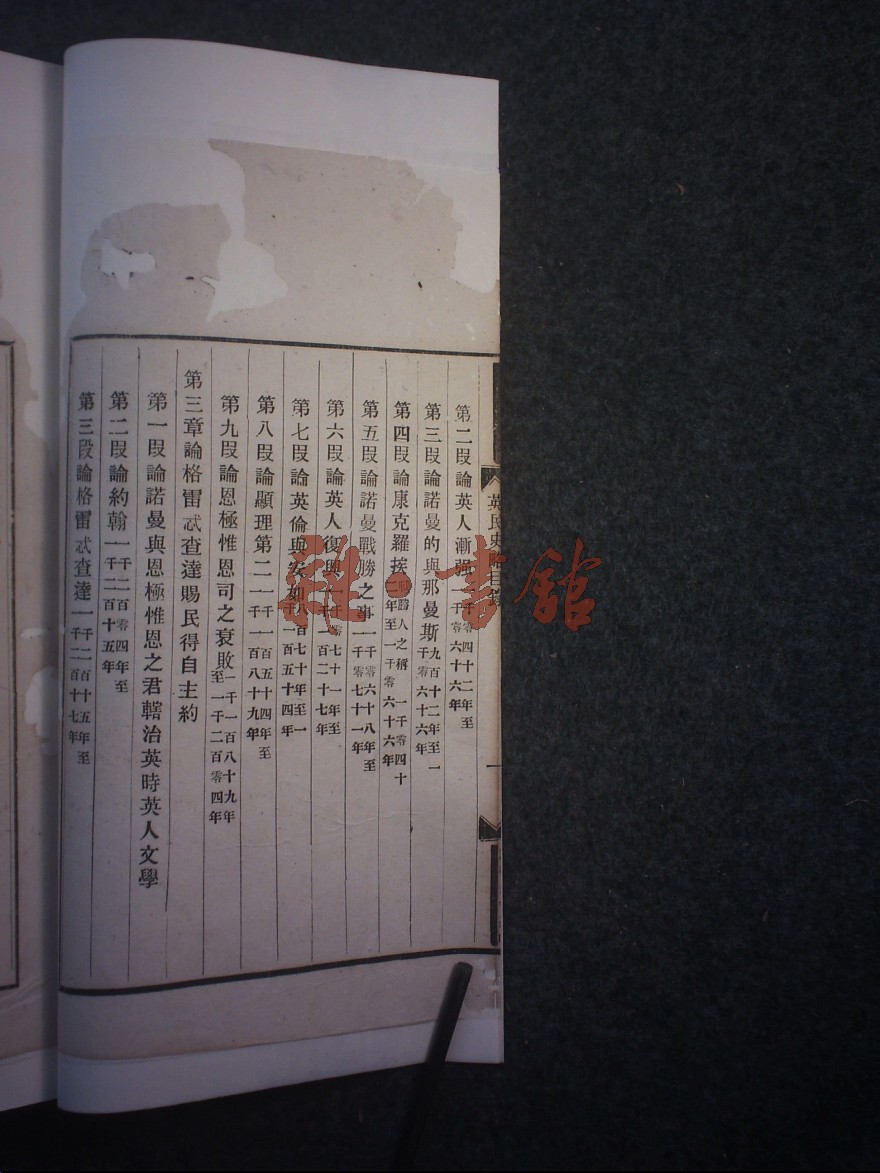 英民史記目錄
第二段論英人漸强 一千零四十二年至一千零六十六年
第三段論諾曼的與那曼斯 九百十二年至一千零六十六年
第四段論康克羅挨 戰勝人之稱 一千零四十二年至一千零六十六年
第五段論諾曼戰勝之事 一千零六十八年至一千零七十一年
第六段論英人復興 一千零七十一年至一千一百二十七年
第七段論英倫與安如 八百七十年至一千一百五十四年
第八段論顯理第二 一千一百五十四年至一千一百八十九年
第九段論恩極惟恩司之衰敗 一千一百八十九年至一千二百零四年
第三章論格雷忒查達賜民得自主約
第一段論諾曼與恩極惟恩之君轄治英時英人文學
第二段論約翰 一千二百零四年至一千二百十五年
第三段論格雷忒查達 一千二百十五年至一千二百十七年
雜·書館